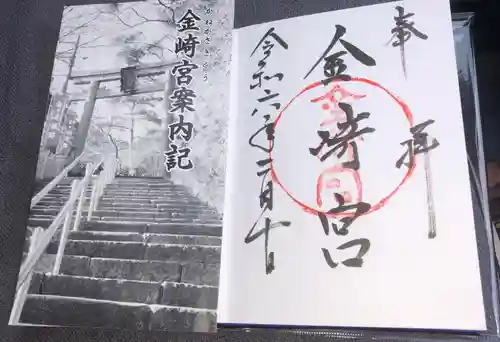 金崎宮案内記
かねがさきぐう
奉拝
金崎宮
令和六年二月十日